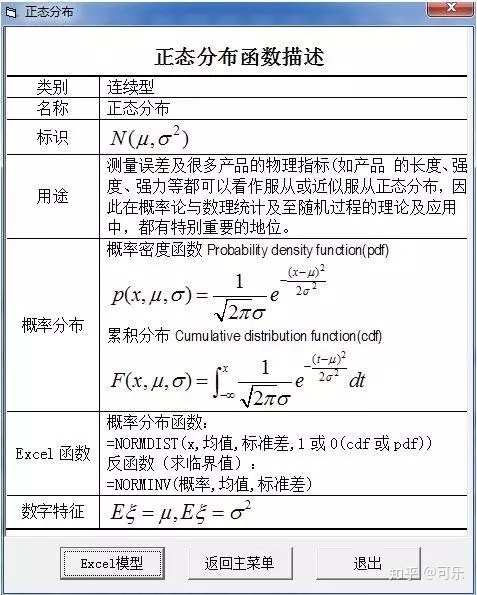 正态分布
正态分布函数描述
类别 连续型
名称 正态分布
标识 N(μ,σ²)
用途
测量误差及很多产品的物理指标(如产品 的长度、强
度、强力等都可以看作服从或近似服从正态分布，因
此在概率论与数理统计及至随机过程的理论及应用
中，都有特别重要的地位。
概率分布
概率密度函数 Probability density function(pdf)
p(x,μ,σ)=1/(√2πσ) e^(-(x-μ)²/2σ²)
累积分布 Cumulative distribution function(cdf)
F(x,μ,σ)=∫_{-∞}^{x} 1/(√2πσ) e^(-(t-μ)²/2σ²) dt
Excel 函数
概率分布函数：
=NORMDIST(x,均值,标准差,1或0(cdf或pdf))
反函数（求临界值）：
=NORMINV(概率,均值,标准差)
数字特征 Eξ=μ,Eξ=σ²
Excel模型 返回主菜单 退出
知乎 @可乐